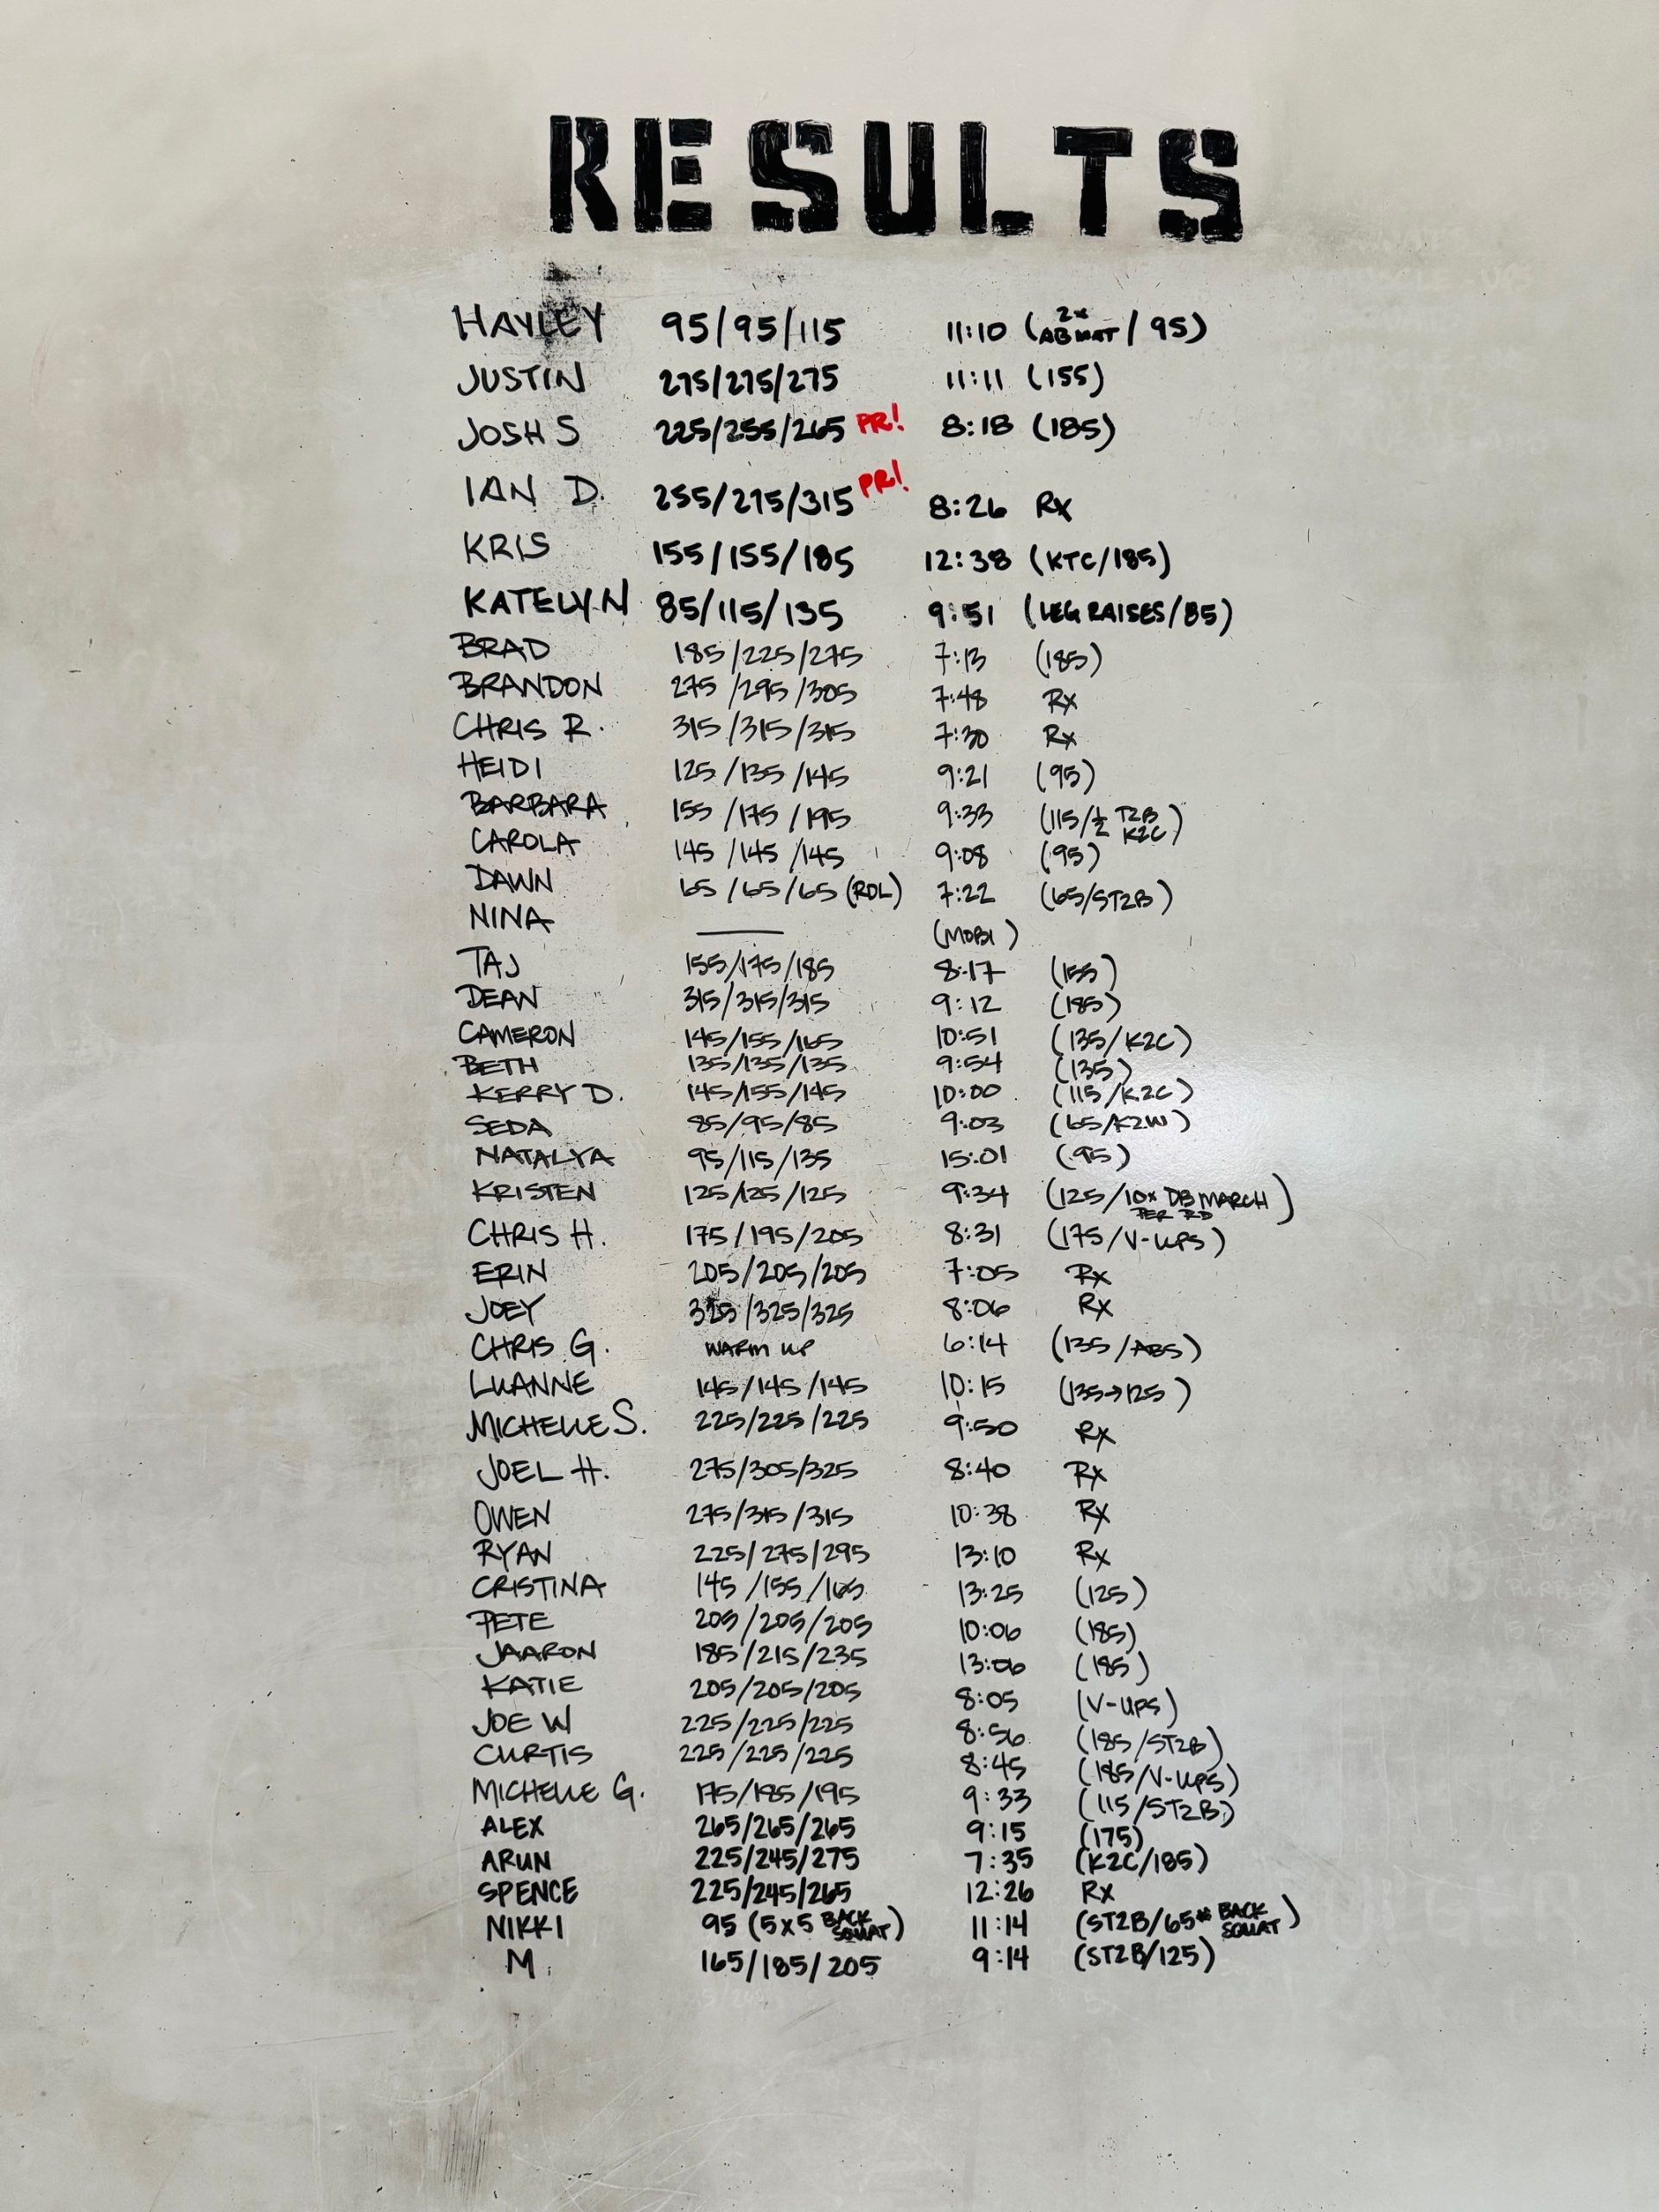 RESULTS
HAYLEY 95/95/115 11:10 (2x ABMAT / 95)
JUSTIN 275/275/275 11:11 (155)
JOSH S 225/255/265 PR! 8:18 (185)
IAN D. 255/275/315 PR! 8:26 Rx
KRIS 155/155/185 12:38 (KTC/185)
KATELYN 85/115/135 9:51 (LEG RAISES/85)
BRAD 185/225/275 7:13 (185)
BRANDON 275/295/305 7:48 Rx
CHRIS R. 315/315/315 7:30 Rx
HEIDI 125/135/145 9:21 (95)
BARBARA 155/175/195 9:33 (115/½ T2B K2C)
CAROLA 145/145/145 9:08 (95)
DAWN 65/65/65 (RDL) 7:22 (65/ST2B)
NINA — (MOBI)
TAJ 155/175/185 8:17 (155)
DEAN 315/315/315 9:12 (185)
CAMERON 145/155/165 10:51 (135/K2C)
BETH 135/135/135 9:54 (135)
KERRY D. 145/155/145 10:00 (115/K2C)
SEDA 85/95/85 9:03 (65/K2W)
NATALYA 95/115/135 15:01 (95)
KRISTEN 125/125/125 9:34 (125/10x DB MARCH PER RD)
CHRIS H. 175/195/205 8:31 (175/V-UPS)
ERIN 205/205/205 7:05 Rx
JOEY 325/325/325 8:06 Rx
CHRIS G. WARM UP 6:14 (135/ABS)
LUANNE 145/145/145 10:15 (135→125)
MICHELLE S. 225/225/225 9:50 Rx
JOEL H. 275/305/325 8:40 Rx
OWEN 275/315/315 10:38 Rx
RYAN 225/275/295 13:10 Rx
CRISTINA 145/155/165 13:25 (125)
PETE 205/205/205 10:06 (185)
JAARON 185/215/235 13:06 (185)
KATIE 205/205/205 8:05 (V-UPS)
JOE W 225/225/225 8:56 (185/ST2B)
CURTIS 225/225/225 8:45 (185/V-UPS)
MICHELLE G. 175/185/195 9:33 (115/ST2B)
ALEX 265/265/265 9:15 (175)
ARUN 225/245/275 7:35 (K2C/185)
SPENCE 225/245/265 12:26 Rx
NIKKI 95 (5x5 BACK SQUAT) 11:14 (ST2B/65# BACK SQUAT)
M. 165/185/205 9:14 (ST2B/125)